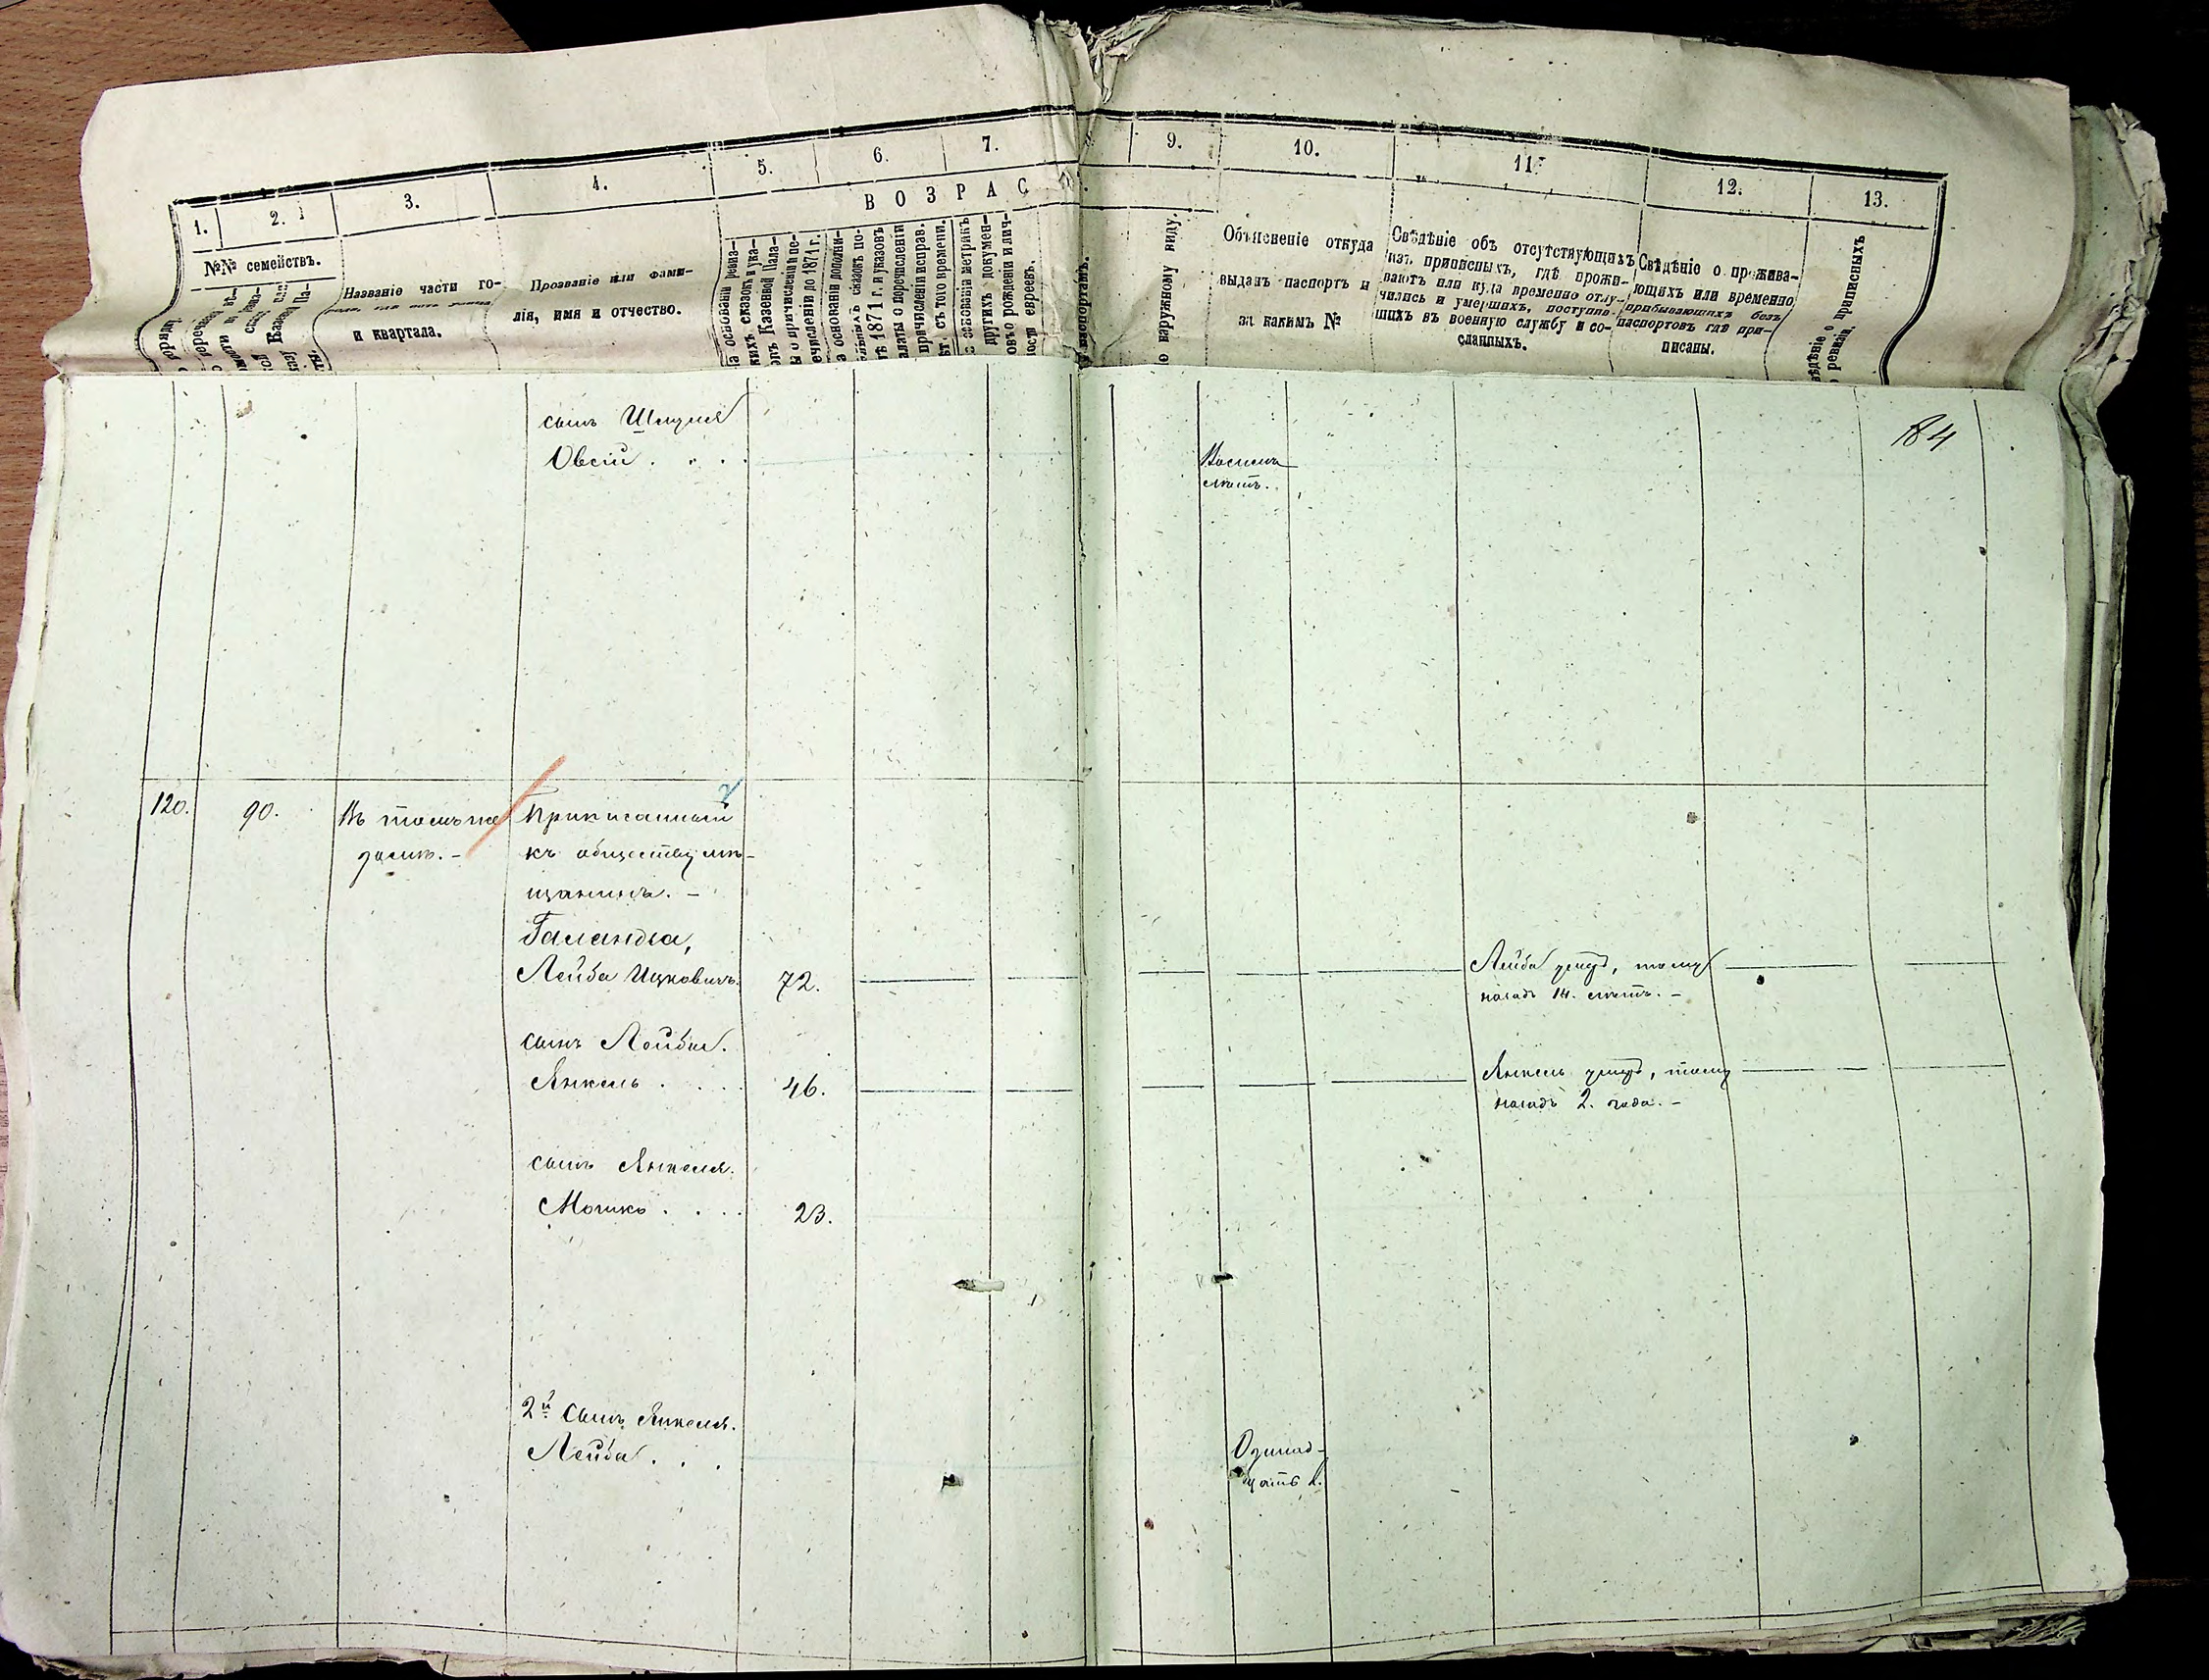 1.
2.
3.
4.
5.
6.
7.
9.
10.
11.
12.
13.
ВОЗРАС
№№ семействъ.
Названіе части го-
и квартала.
Прозваніе или фами-
лія, имя и отчество.
по наружному виду.
Объясненіе откуда
выданъ паспортъ и
за какимъ №
Свѣдѣніе объ отсутствующихъ
изъ приписныхъ, гдѣ прожи-
ваютъ или куда временно отлу-
чились и умершихъ, поступив-
шихъ въ военную службу и со-
сланныхъ.
Свѣдѣніе о прожива-
ющихъ или временно
прибывающихъ безъ
паспортовъ гдѣ при-
писаны.
приписныхъ
184
сынъ Шмуля
Овсій . . .
Восемь
лѣтъ.
120.
90.
Въ томъ же
домѣ. -
Приписанный
къ обществу мѣ-
щанинъ. -
Галандза,
Лейба Ицковичъ.
72.
Лейба умеръ, тому
назадъ 14. лѣтъ. -
сынъ Лейбы.
Янкель . . . .
46.
Янкель умеръ, тому
назадъ 2. года. -
сынъ Янкеля.
Мошко . . . .
23.
2й сынъ Янкеля.
Лейба . . .
Одинад-
цать л.